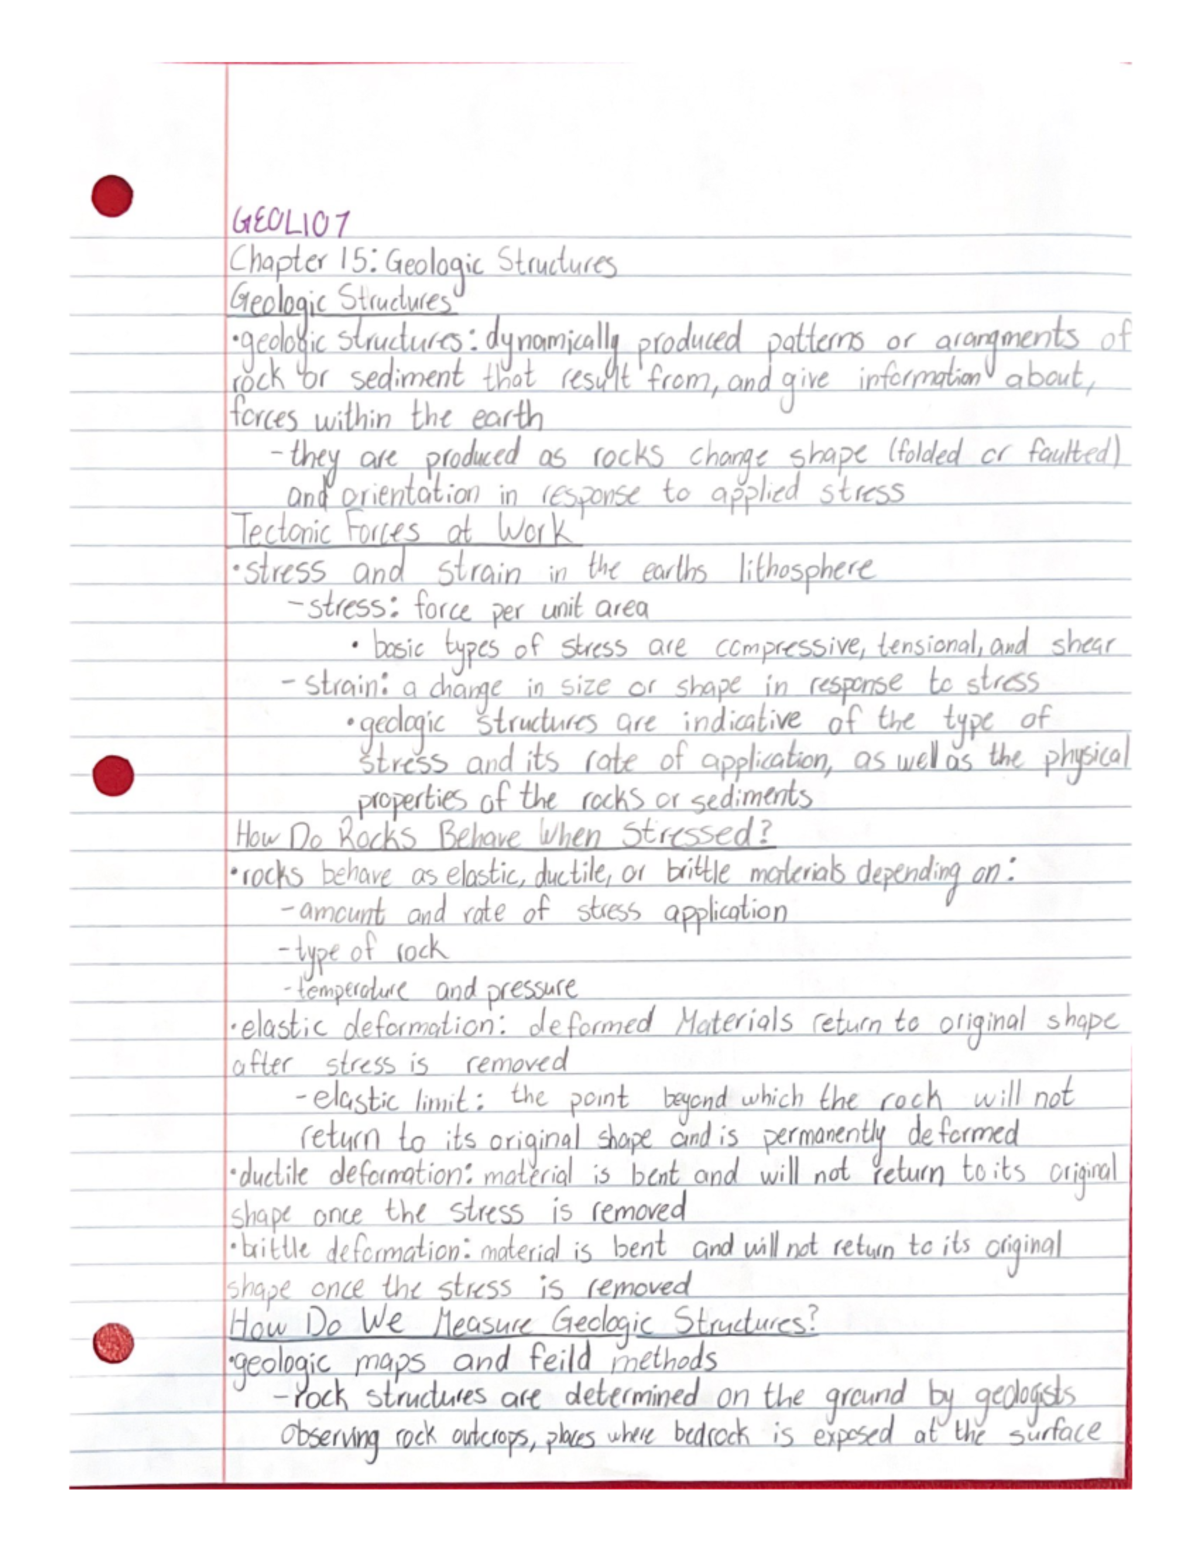 GEOL107
Chapter 15: Geologic Structures
Geologic Structures
•geologic structures: dynamically produced patterns or arangments of
rock or sediment that result from, and give information about,
forces within the earth
-they are produced as rocks change shape (folded or faulted)
and orientation in response to applied stress
Tectonic Forces at Work
•stress and strain in the earths lithosphere
-stress: force per unit area
• basic types of stress are compressive, tensional, and shear
- strain: a change in size or shape in response to stress
•geologic structures are indicative of the type of
stress and its rate of application, as well as the physical
properties of the rocks or sediments
How Do Rocks Behave When Stressed?
•rocks behave as elastic, ductile, or brittle materials depending on:
-amount and rate of stress application
-type of rock
-temperature and pressure
•elastic deformation: deformed Materials return to original shape
after stress is removed
-elastic limit: the point beyond which the rock will not
return to its original shape and is permanently deformed
•ductile deformation: material is bent and will not return to its original
shape once the stress is removed
•brittle deformation: material is bent and will not return to its original
shape once the stress is removed
How Do We Measure Geologic Structures?
•geologic maps and feild methods
-rock structures are determined on the ground by geologists
observing rock outcrops, places where bedrock is exposed at the surface